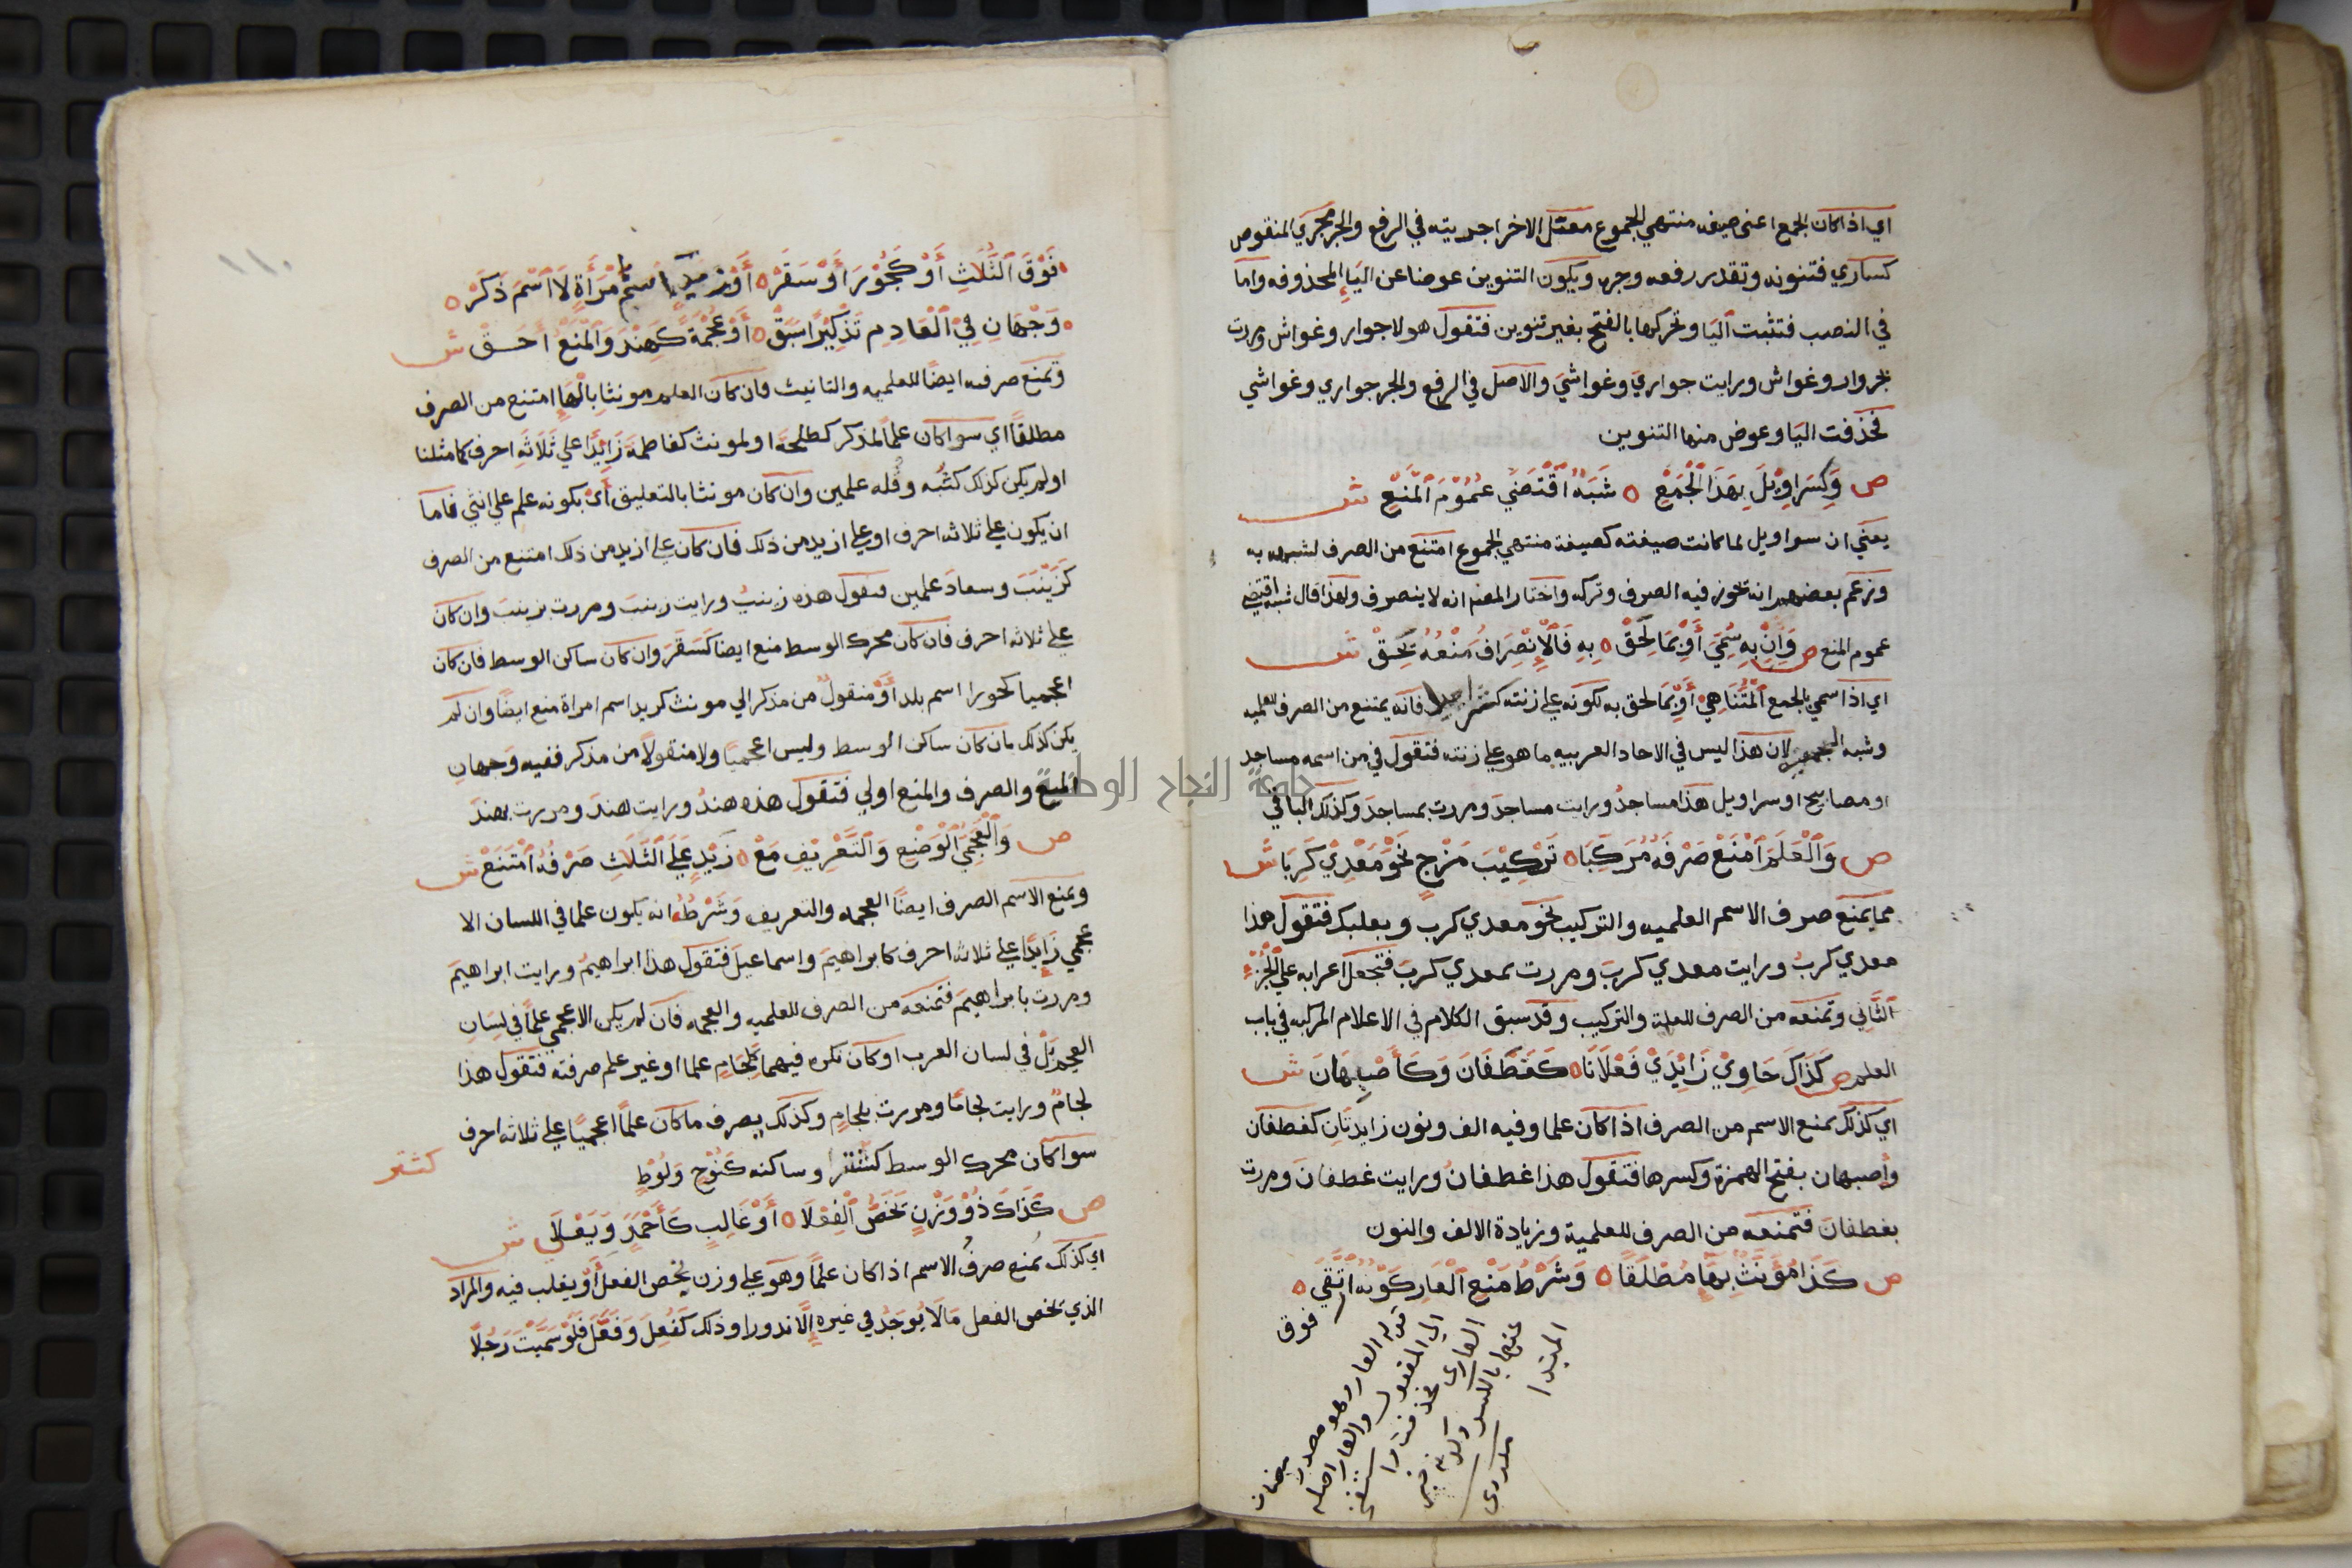 اي اذا كان الجمع اعني صيغه منتهي الجموع معتل الاخر اجريته في الرفع والجر مجري المنقوص
كساري فتنونه وتقدر رفعه وجره ويكون التنوين عوضا عن الياء المحذوفه واما
في النصب فتثبت اليا وتحركها بالفتح بغير تنوين فتقول هولا جوار وغواش ومررت
بجوار وغواش ورايت جواريَ وغواشيَ والاصل في الرفع والجر جواري وغواشي
فحذفت اليا وعوض منها التنوين
ص وَلِسَرَاوِيْلَ بِهَذَا الْجَمْعِ ٥ شَبَهٌ اقْتَضَي عُمُوْمَ الْمَنْعِ ش
يعني ان سراويل لما كانت صيغته كصيغة منتهي الجموع امتنع من الصرف لشبهه به
وزعم بعضهم انه يجوز فيه الصرف وتركه واختار المصنم انه لا ينصرف ولهذا قال شبه اقتضي
عموم المنع ص وَاِنْ بِهِ سُمِّيَ أَوْ بِمَا لَحِقْ ٥ بِهِ فَالْاِنْصِرَافُ مَنْعُهُ يَحِقْ ش
اي اذا سمي بالجمع الْمُتَنَاهِيْ أَوْ بِمَا لحق به لكونه علي زنته كشراحيل فانه يمتنع من الصرف للعلميه
وشبه العجمه لان هذا ليس في الاحاد العربيه ما هو علي زنته فتقول في من اسمه مساجد
او مصابيح او سراويل هذا مساجدُ ورايت مساجدَ ومررت بمساجدَ وكذلك الباقي
ص وَالْعَلَمَ امْنَعْ صَرْفَهُ مُرَكَّبَا ٥ تَرْكِيْبَ مَزْجٍ نَحْوُ مَعْدِيْ كَرِبَا ش
مما يمنع صرف الاسم العلميه والتركيب نحو معدي كرب وبعلبك فتقول هذا
معدي كربُ ورايت معدي كربَ ومررت بمعدي كربَ فتجعل اعرابه علي الْجُزْءِ
الثَّانِي وتمنعه من الصرف للعلمة والتركيب وقد سبق الكلام في الاعلام المركبه في باب
العلم ص كَذَاكَ حَاوِيْ زَائِدَيْ فَعْلَانَا ٥ كَغَطَفَانَ وَكَأَصْبِهَانَ ش
اي كذلك يمنع الاسم من الصرف اذا كان علما وفيه الف ونون زايدتان كغطفان
وأصبهان بفتح الهمزة وكسرها فتقول هذا غطفانُ ورايت غطفانَ ومررت
بغطفانَ فتمنعه من الصرف للعلمية وزيادة الالف والنون
ص كَذَا مُؤَنَّثٌ بِهَاءٍ مُطْلَقَا ٥ وَشَرْطُ مَنْعِ الْعَارِ كَوْنُهُ اتَّقَي ٥
فوق
قوله العار وهو مصدر مضاف
الي المفعول والعار اصله
العاري بحذفت
عنها بالكسر وكونه خبر
المبتدا
١١٠
فَوْقَ الثَّلَاثِ أَوْ كَجُوْرَ أَوْ سَقَرْ ٥ أَوْ زَيْدٍ اسْمَ امْرَأَةٍ لَا اسْمَ ذَكَرْ ٥
وَجْهَانِ فِيْ الْعَادِمِ تَذْكِيْرًا سَبَقْ ٥ أَوْ عُجْمَةً كَهِنْدَ وَالْمَنْعُ أَحَقْ ش
وتمنع صرفه ايضًا للعلميه والتانيث فان كان العلم مونثا بِالْهَاءِ امتنع من الصرف
مطلقًا اي سوا كان علمًا لمذكر كطلحة او لمونث كفاطمة زَائِدًا علي ثَلَاثَةِ احرف كما مثلنا
او لم يكن كذلك كثُبه وقُله علمين وان كان مونثا بالتعليق أيْ بكونه علم علي انثي فاما
ان يكون علي ثلاثه احرف او علي ازيد من ذلك فان كان علي ازيد من ذلك امتنع من الصرف
كَزَيْنَبَ وسعادَ علمين فتقول هذه زينبُ ورايت زينبَ ومررت بزينبَ وان كان
علي ثلاثه احرف فان كان محرك الوسط منع ايضا كَسَقَرَ وان كان ساكن الوسط فان كان
اعجميا كجور اسم بلد أَوْ منقولٌ من مذكر الي مونث كزيد اسم امراة منع ايضًا وان لم
يكن كذلك بان كان ساكن الوسط وليس اعجميًا ولا منقولًا من مذكر ففيه وجهان
المنع والصرف والمنع اولي فتقول هذه هندُ ورايت هندَ ومررت بهندَ
ص وَالْعَجَمِيُّ الْوَضْعِ وَالتَّعْرِيْفِ مَعْ ٥ زَيْدٍ عَلَي الثَّلَاثِ صَرْفُهُ امْتَنَعْ ش
ويمنع الاسم الصرف ايضًا العجمه والتعريف وَشَرْطُهُ انه يكون علما في اللسان الا
عجمي زَايِدًا علي ثلاثه احرف كابراهيمَ واسماعيلَ فتقول هذا ابراهيمُ ورايت ابراهيمَ
ومررت بابراهيمَ فتمنعه من الصرف للعلميه والعجمه فان لم يكن الاعجمي علمًا في لِسَانِ
العجم بَلْ في لسان العرب او كان نكره فيهما كَلِجَامٍ علما او غير علم صرفته فتقول هذا
لجامٌ ورايت لجامًا ومررت بلجامٍ وكذلك يصرف ما كان علمًا اعجميًا علي ثلاثه احرف
سوا كان محرك الوسط كشتر او ساكنه كَنُوْحٍ وَلُوْطٍ
كشتر
ص كَذَاكَ ذُوْ وَزْنٍ يَخُصُّ الْفِعْلَا ٥ أَوْ غَالِبٍ كَأَحْمَدٍ وَيَعْلَي ش
اي كذلك يُمنع صرفُ الاسم اذا كان علمًا وهو علي وزن يخص الفعل أَوْ يغلب فيه والمراد
الذي يخص الفعل مَا لَا يُوجَدُ في غيره إِلَّا ندورا وذلك كَفُعِلَ وَفَعَّلَ فَلَوْ سَمَّيْتَ رَجُلًا
جامعة النجاح الوطنية